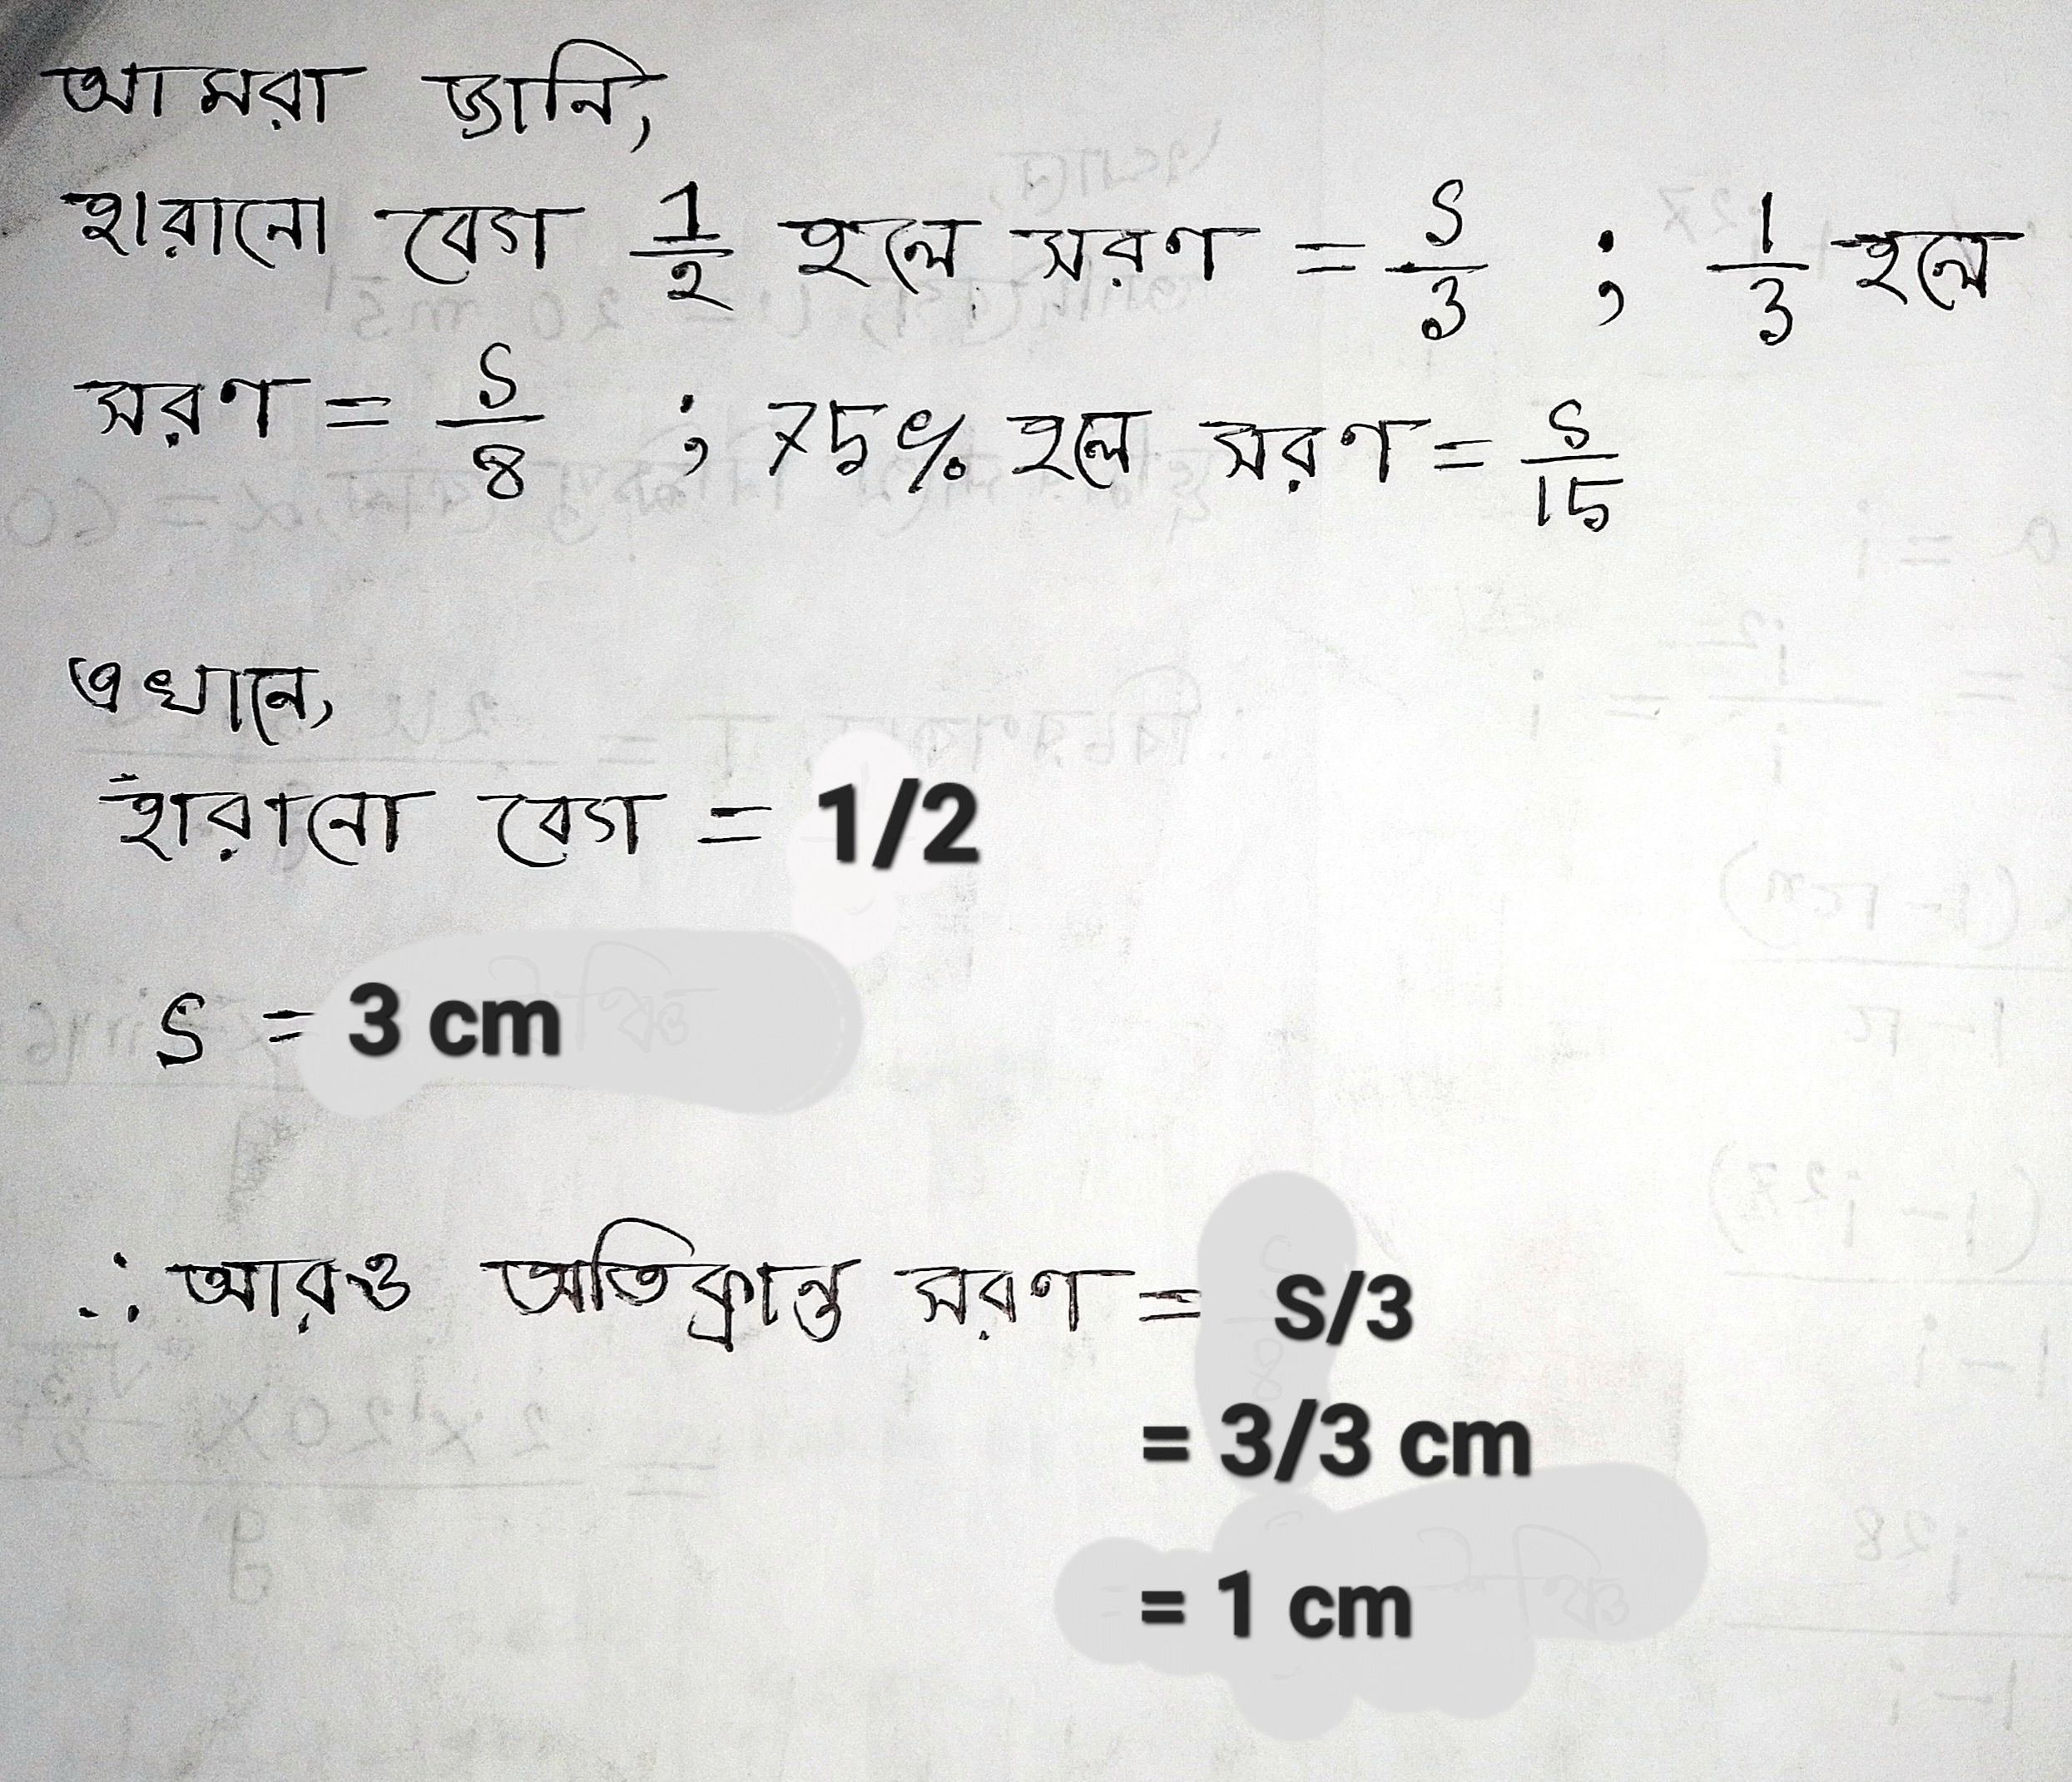 আমরা জানি,
হারানো বেগ 1/2 হলে সরণ = S/3 ; 1/3 হলে
সরণ = S/8 ; 75% হলে সরণ = S/15
এখানে,
হারানো বেগ = 1/2
S = 3 cm
∴ আরও অতিক্রান্ত সরণ = S/3
= 3/3 cm
= 1 cm